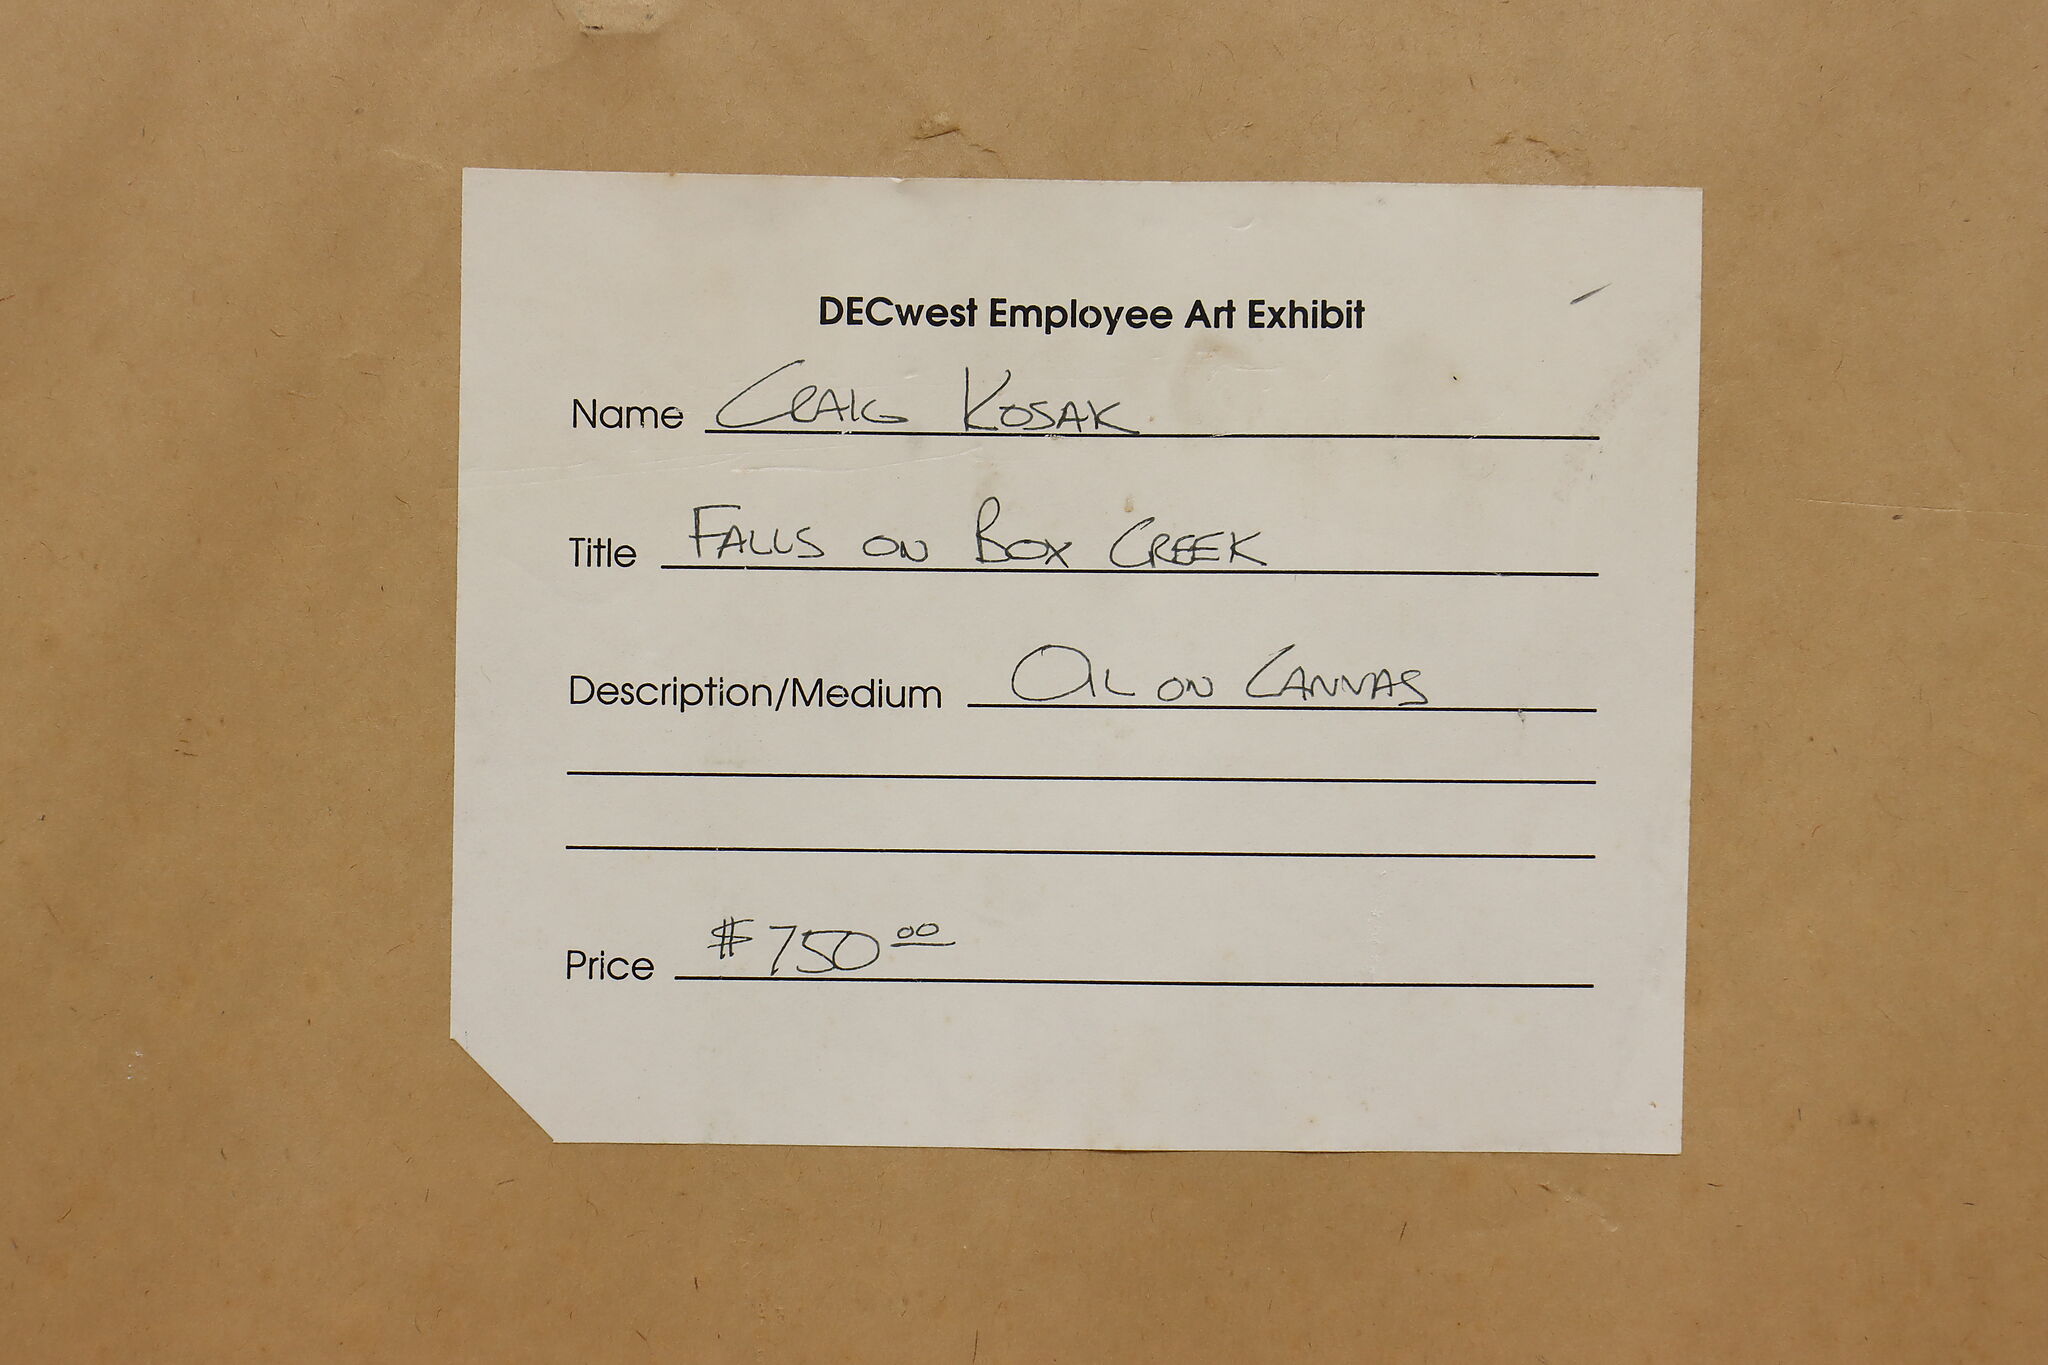 DECwest Employee Art Exhibit
Name CRAIG KOSAK
Title FALLS ON BOX CREEK
Description/Medium OIL ON CANVAS
Price $750.00